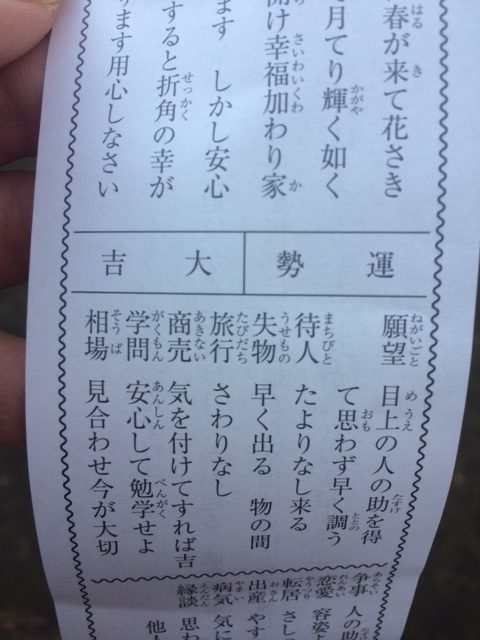 春が来て花さき
月てり輝く如く
開け幸福加わり家
ます しかし安心
すると折角の幸が
ります用心しなさい
運勢 大吉
願望 目上の人の助を得
て思わず早く調う
待人 たよりなし来る
失物 早く出る 物の間
旅行 さわりなし
商売 気を付けてすれば吉
学問 安心して勉学せよ
相場 見合わせ今が大切
争事 人の助
恋愛 容姿
転居 さし
出産 やす
病気 気に
縁談 思わ
他